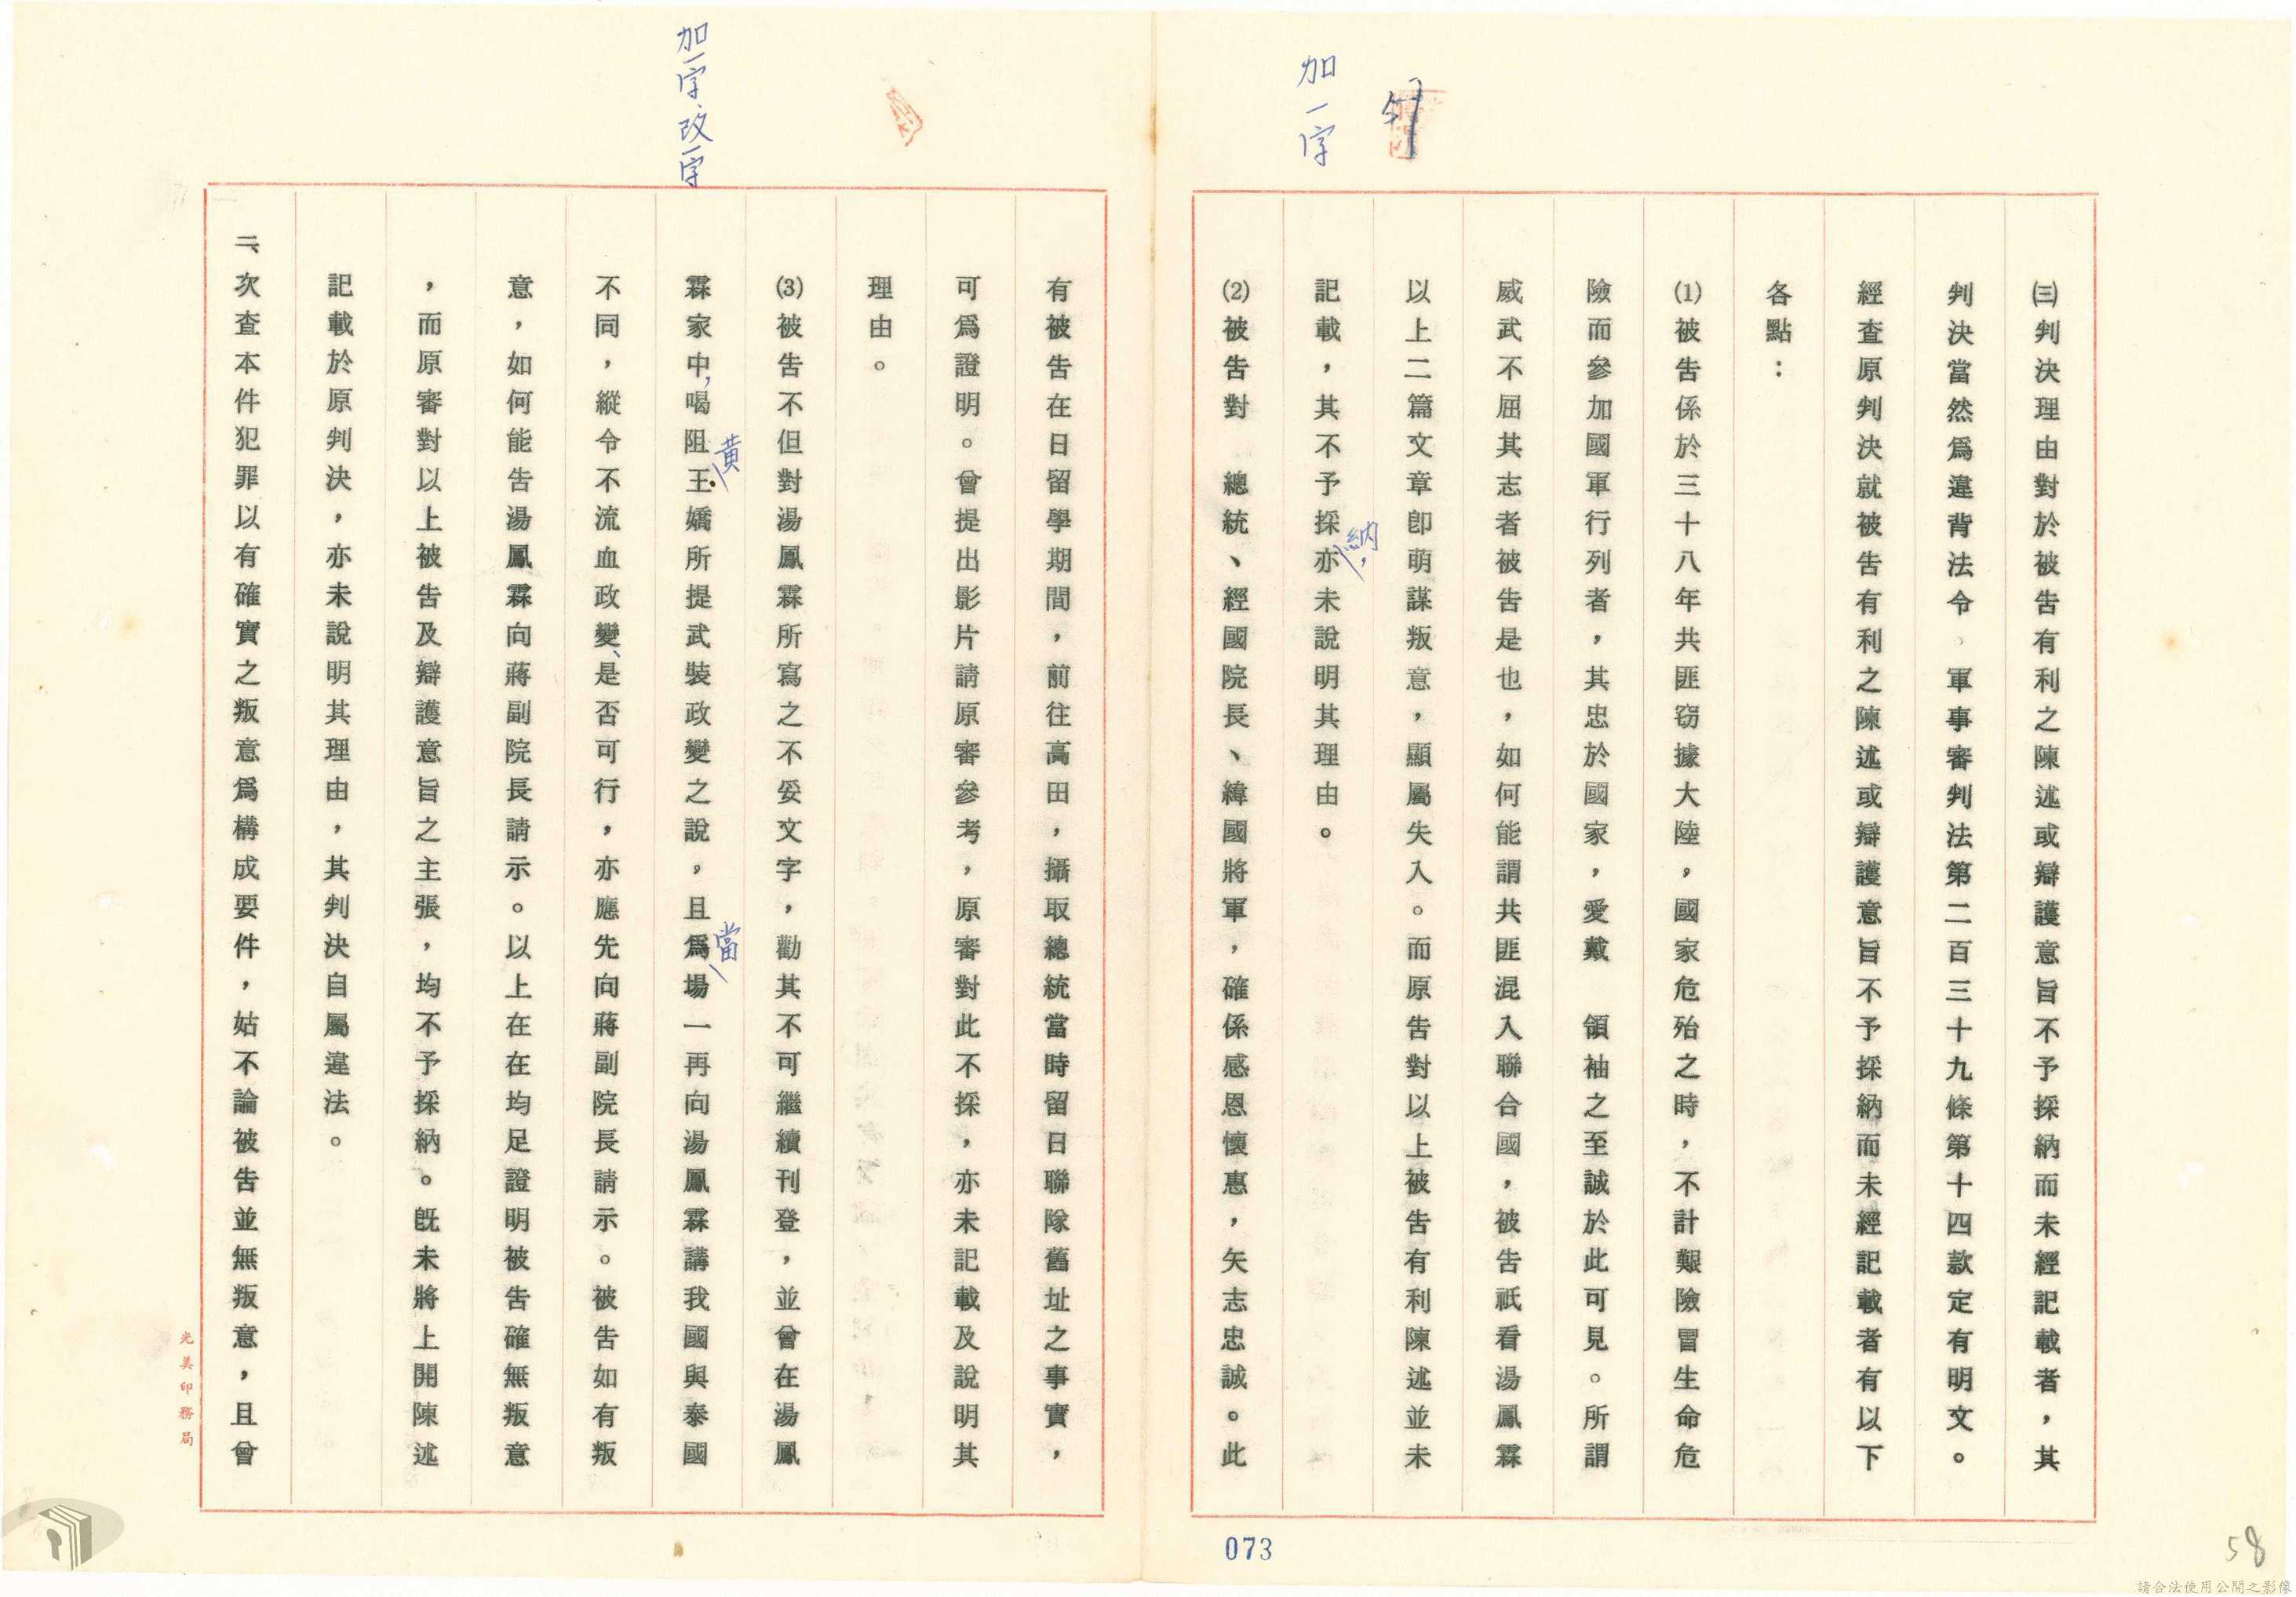 加一字
㈢判決理由對於被告有利之陳述或辯護意旨不予採納而未經記載者，其
判決當然爲違背法令。軍事審判法第二百三十九條第十四款定有明文。
經查原判決就被告有利之陳述或辯護意旨不予採納而未經記載者有以下
各點：
⑴被告係於三十八年共匪窃據大陸，國家危殆之時，不計艱險冒生命危
險而參加國軍行列者，其忠於國家，愛戴　領袖之至誠於此可見。所謂
威武不屈其志者被告是也，如何能謂共匪混入聯合國，被告祇看湯鳳霖
以上二篇文章卽萌謀叛意，顯屬失入。而原告對以上被告有利陳述並未
記載，其不予採納，亦未說明其理由。
⑵被告對　總統、經國院長、緯國將軍，確係感恩懷惠，矢志忠誠。此
加一字、改一字
有被告在日留學期間，前往高田，攝取總統當時留日聯隊舊址之事實，
可爲證明。曾提出影片請原審參考，原審對此不採，亦未記載及說明其
理由。
⑶被告不但對湯鳳霖所寫之不妥文字，勸其不可繼續刊登，並曾在湯鳳
霖家中，喝阻王黃嬌所提武裝政變之說。且爲當場一再向湯鳳霖講我國與泰國
不同，縱令不流血政變、是否可行，亦應先向蔣副院長請示。被告如有叛
意，如何能告湯鳳霖向蔣副院長請示。以上在在均足證明被告確無叛意
，而原審對以上被告及辯護意旨之主張，均不予採納。既未將上開陳述
記載於原判決，亦未說明其理由，其判決自屬違法。
二、次查本件犯罪以有確實之叛意爲構成要件，姑不論被告並無叛意，且曾
光美印務局
073
58
請合法使用公開之影像